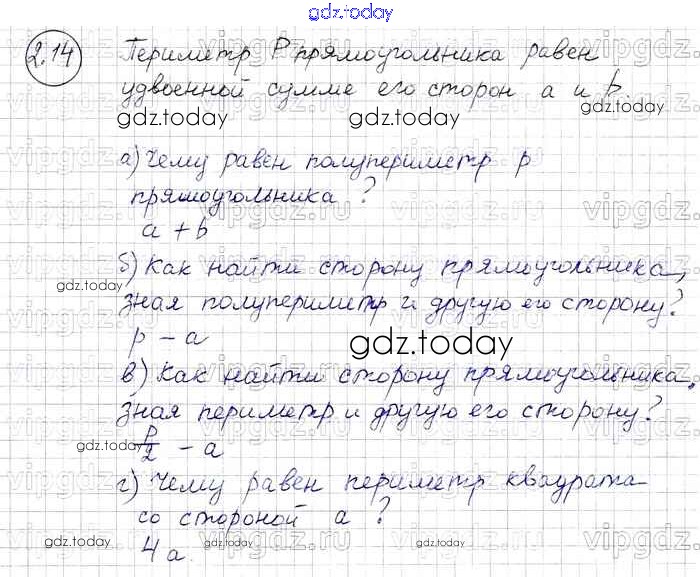 gdz.today
2.14 Периметр P прямоугольника равен
удвоенной сумме его сторон a и b.
gdz.today gdz.today gdz.today
а) Чему равен полупериметр p
прямоугольника?
a + b
б) Как найти сторону прямоугольника,
gdz.today
зная полупериметр и другую его сторону?
p - a
gdz.today
в) Как найти сторону прямоугольника,
зная периметр и другую его сторону?
P/2 - a
gdz.today
г) Чему равен периметр квадрата
со стороной a?
gdz.today gdz.today gdz.today
4a
vipgdz.ru